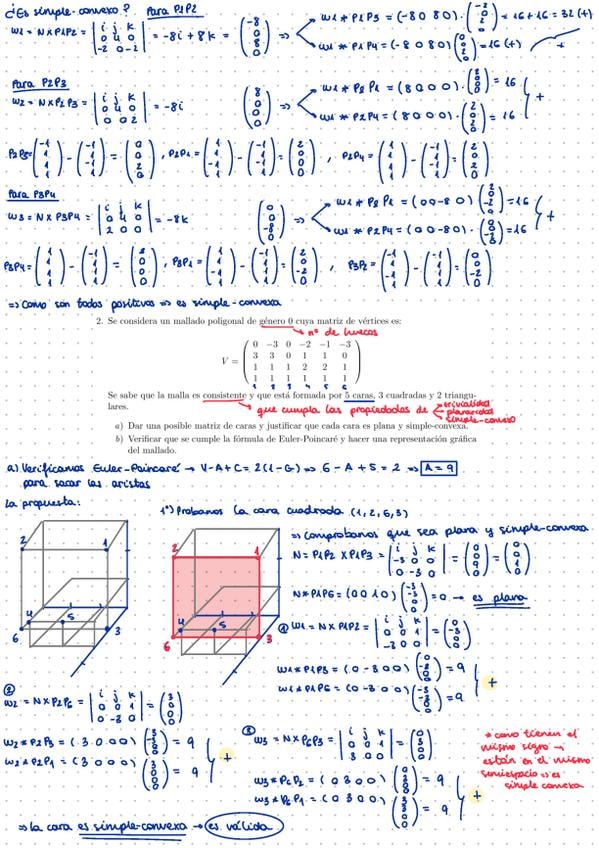 ¿Es simple-convexo? Para P1P2
w1 = N x P1P2 = | i j k / 0 4 0 / -2 0 -2 | = -8i + 8k = (-8 0 8 0) => w1 * P1P3 = (-8 0 8 0) · (-2 0 2 0) = 16 + 16 = 32 (+)
w1 * P1P4 = (-8 0 8 0) (0 0 2 0) = 16 (+)
Para P2P3
w2 = N x P2P3 = | i j k / 0 4 0 / 0 0 2 | = -8i (8 0 0 0) => w1 * P2P1 = (8 0 0 0) · = 16
w1 * P2P4 = (8 0 0 0) · (2 0 2 0) = 16 +
P2P3 = (-1 1 1 1) - (-1 1 -1 1) = (0 0 2 0), P2P1 = (1 1 -1 1) - (-1 1 -1 1) = (2 0 0 0), P2P4 = (1 1 1 1) - (-1 1 -1 1) = (2 0 2 0)
Para P3P4
w3 = N x P3P4 = | i j k / 0 4 0 / 2 0 0 | = -8k (0 0 -8 0) => w1 * P3P1 = (0 0 -8 0) (2 0 -2 0) = 16
w1 * P2P4 = (0 0 -8 0) · = 16 +
P3P4 = (1 1 1 1) - (-1 1 1 1) = (2 0 0 0), P3P1 = (1 1 -1 1) - (-1 1 1 1) = (2 0 -2 0), P3P2 = (-1 1 -1 1) - (-1 1 1 1) = (0 0 -2 0)
=> Como son todos positivos => es simple-convexa
2. Se considera un mallado poligonal de género 0 cuya matriz de vértices es:
nº de huecos
V =
0 -3 0 -2 -1 -3
3 3 0 1 1 0
1 1 1 2 2 1
1 1 1 1 1 1
1 2 3 4 5 6
Se sabe que la malla es consistente y que está formada por 5 caras, 3 cuadradas y 2 triangu-
lares.
que cumpla las propiedades de trivialidad
planaridad
simple-convexo
a) Dar una posible matriz de caras y justificar que cada cara es plana y simple-convexa.
b) Verificar que se cumple la fórmula de Euler-Poincaré y hacer una representación gráfica
del mallado.
a) Verificamos Euler-Poincaré → V-A+C = 2(1-G) => 6-A+5 = 2 => A = 9
para sacar las aristas
La propuesta:
1º) Probamos la cara cuadrada (1,2,6,3)
=> Comprobamos que sea plana y simple-convexa
N = P1P2 x P1P3 = | i j k / -3 0 0 / 0 -3 0 | = (0 0 9 0) = (0 0 1 0)
N * P1P6 = (0 0 1 0) (-3 -3 0 0) = 0 → es plana
2 1
4 5
6 3
2 1
4 5
6 3
① w1 = N x P1P2 = | i j k / 0 0 1 / -3 0 0 | = (0 -3 0 0)
w1 * P1P3 = (0 -3 0 0) (0 -3 0 0) = 9
w1 * P1P6 = (0 -3 0 0) (-3 -3 0 0) = 9 +
②
w2 = N x P2P6 = | i j k / 0 0 1 / 0 -3 0 | = (3 0 0 0)
w2 * P2P3 = (3 0 0 0) (3 -3 0 0) = 9
w2 * P2P1 = (3 0 0 0) (3 0 0 0) = 9 +
③ w3 = N x P6P3 = | i j k / 0 0 1 / 3 0 0 | = (0 3 0 0)
w3 * P6P2 = (0 3 0 0) (0 3 0 0) = 9
w3 * P6P1 = (0 3 0 0) (3 3 0 0) = 9 +
* como tienen el
mismo signo →
están en el mismo
semiespacio => es
simple convexa
=> la cara es simple-convexa → es válida